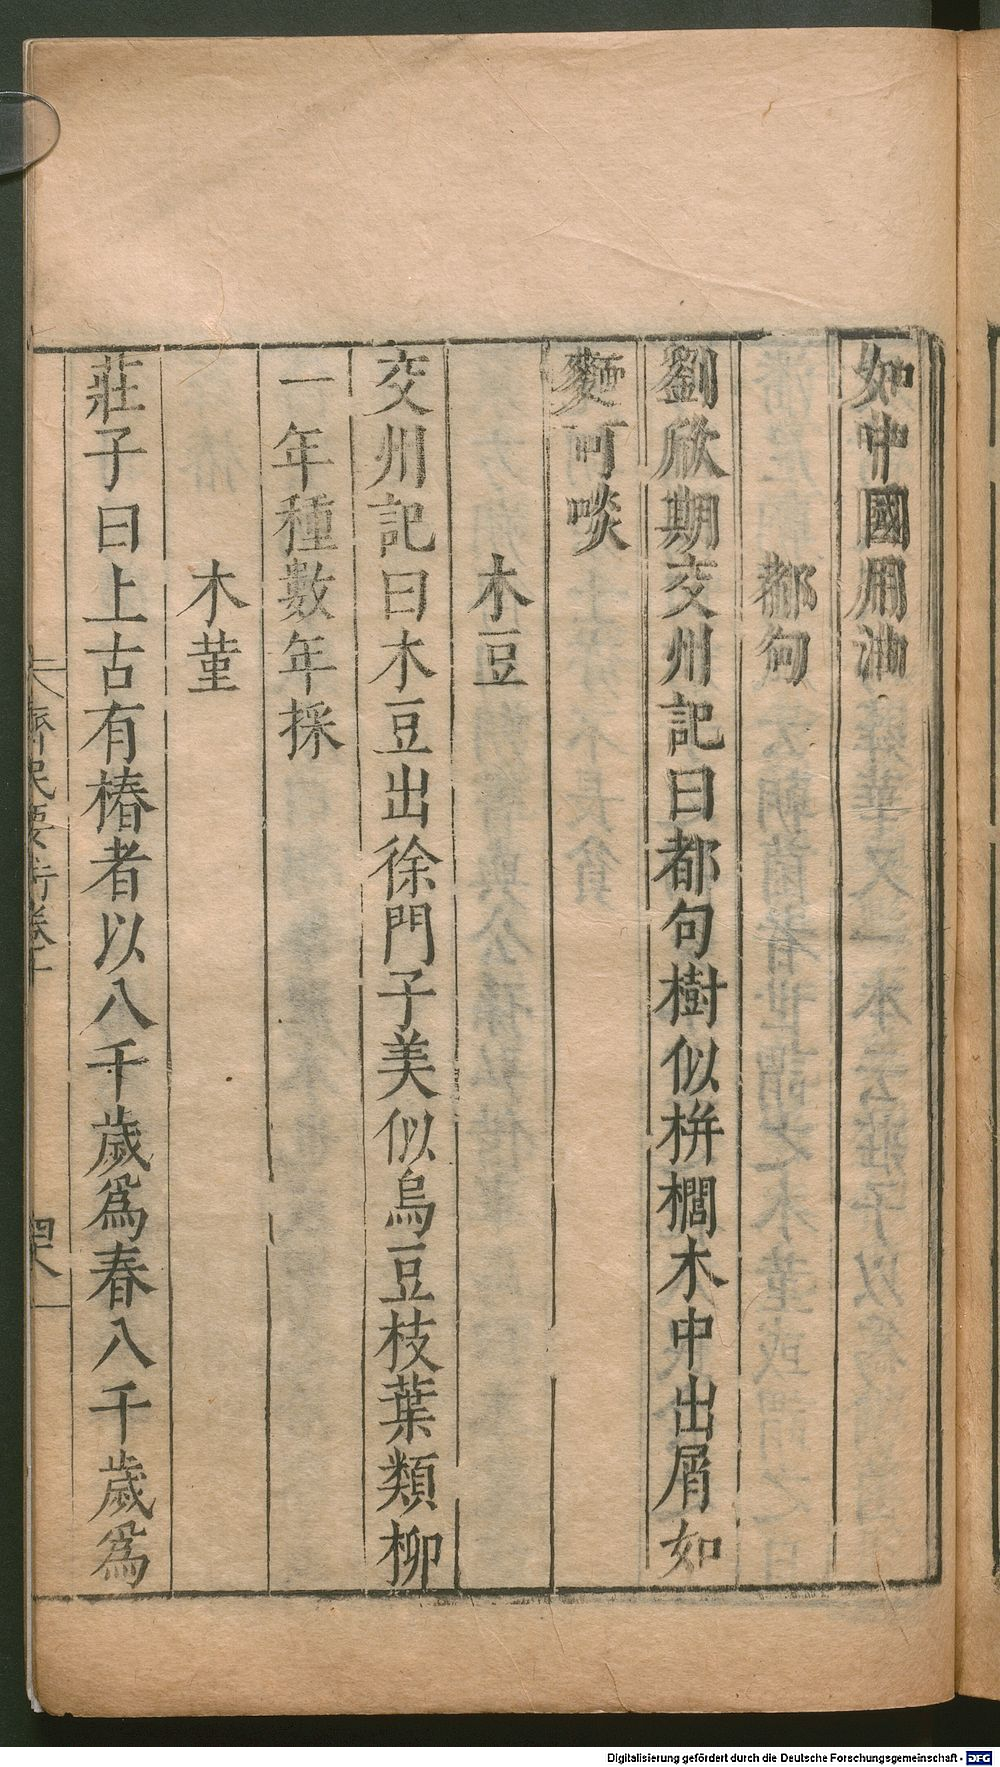 如中國用油
都句
劉欣期交州記曰都句樹似栟櫚木中出屑如
麵可啖
木豆
交州記曰木豆出徐門子美似烏豆枝葉類柳
一年種數年採
木菫
莊子曰上古有椿者以八千歲爲春八千歲爲
齊民要術卷十
四八
Digitalisierung gefördert durch die Deutsche Forschungsgemeinschaft - DFG